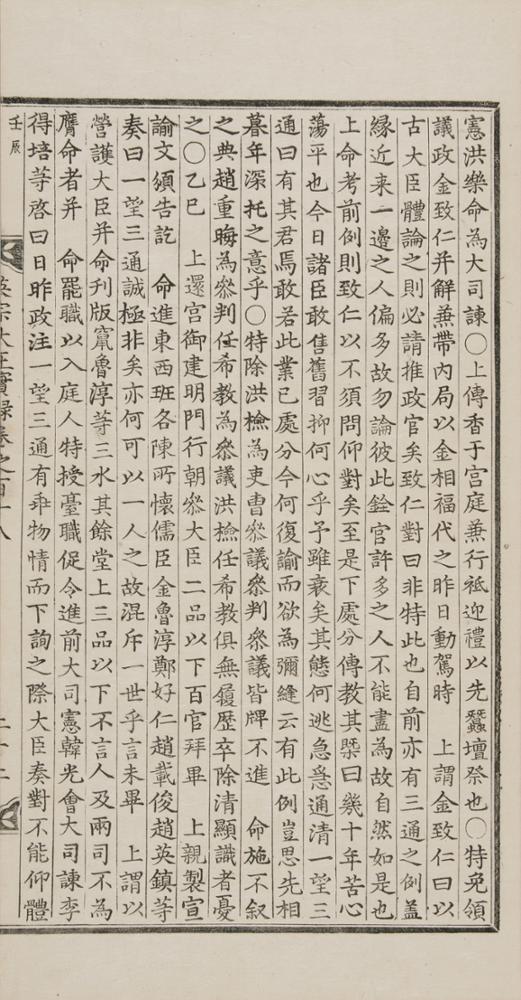 憲洪樂命為大司諫○上傳香于宮庭兼行祗迎禮以先蠶壇祭也○特免領
議政金致仁并解兼帶內局以金相福代之昨日動駕時 上謂金致仁曰以
古大臣體論之則必請推政官矣致仁對曰非特此也自前亦有三通之例盖
緣近来一邊之人偏多故勿論彼此銓官許多之人不能盡為故自然如是也
上命考前例則致仁以不須問仰對矣至是下處分傳教其槩曰幾十年苦心
蕩平也今日諸臣敢售舊習抑何心乎予雖衰矣其態何逃急急通清一望三
通曰有其君焉敢若此業已處分今何復諭而欲為彌縫云有此例豈思先相
暮年深托之意乎○特除洪檢為吏曹叅議叅判叅議皆牌不進 命施不叙
之典趙重晦為叅判任希教為叅議洪檢任希教俱無履歷卒除清顯識者憂
之○乙巳 上還宮御建明門行朝叅大臣二品以下百官拜畢 上親製宣
諭文頒告訖 命進東西班各陳所懷儒臣金魯淳鄭好仁趙載俊趙英鎮等
奏曰一望三通誠極非矣亦何可以一人之故混斥一世乎言未畢 上謂以
營護大臣并命刊版竄魯淳等三水其餘堂上三品以下不言人及兩司不為
膺命者并 命罷職以入庭人特授臺職促令進前大司憲韓光會大司諫李
得培等啓曰日昨政注一望三通有乖物情而下詢之際大臣奏對不能仰體
壬辰
英宗大王實錄卷之百十八
二十二